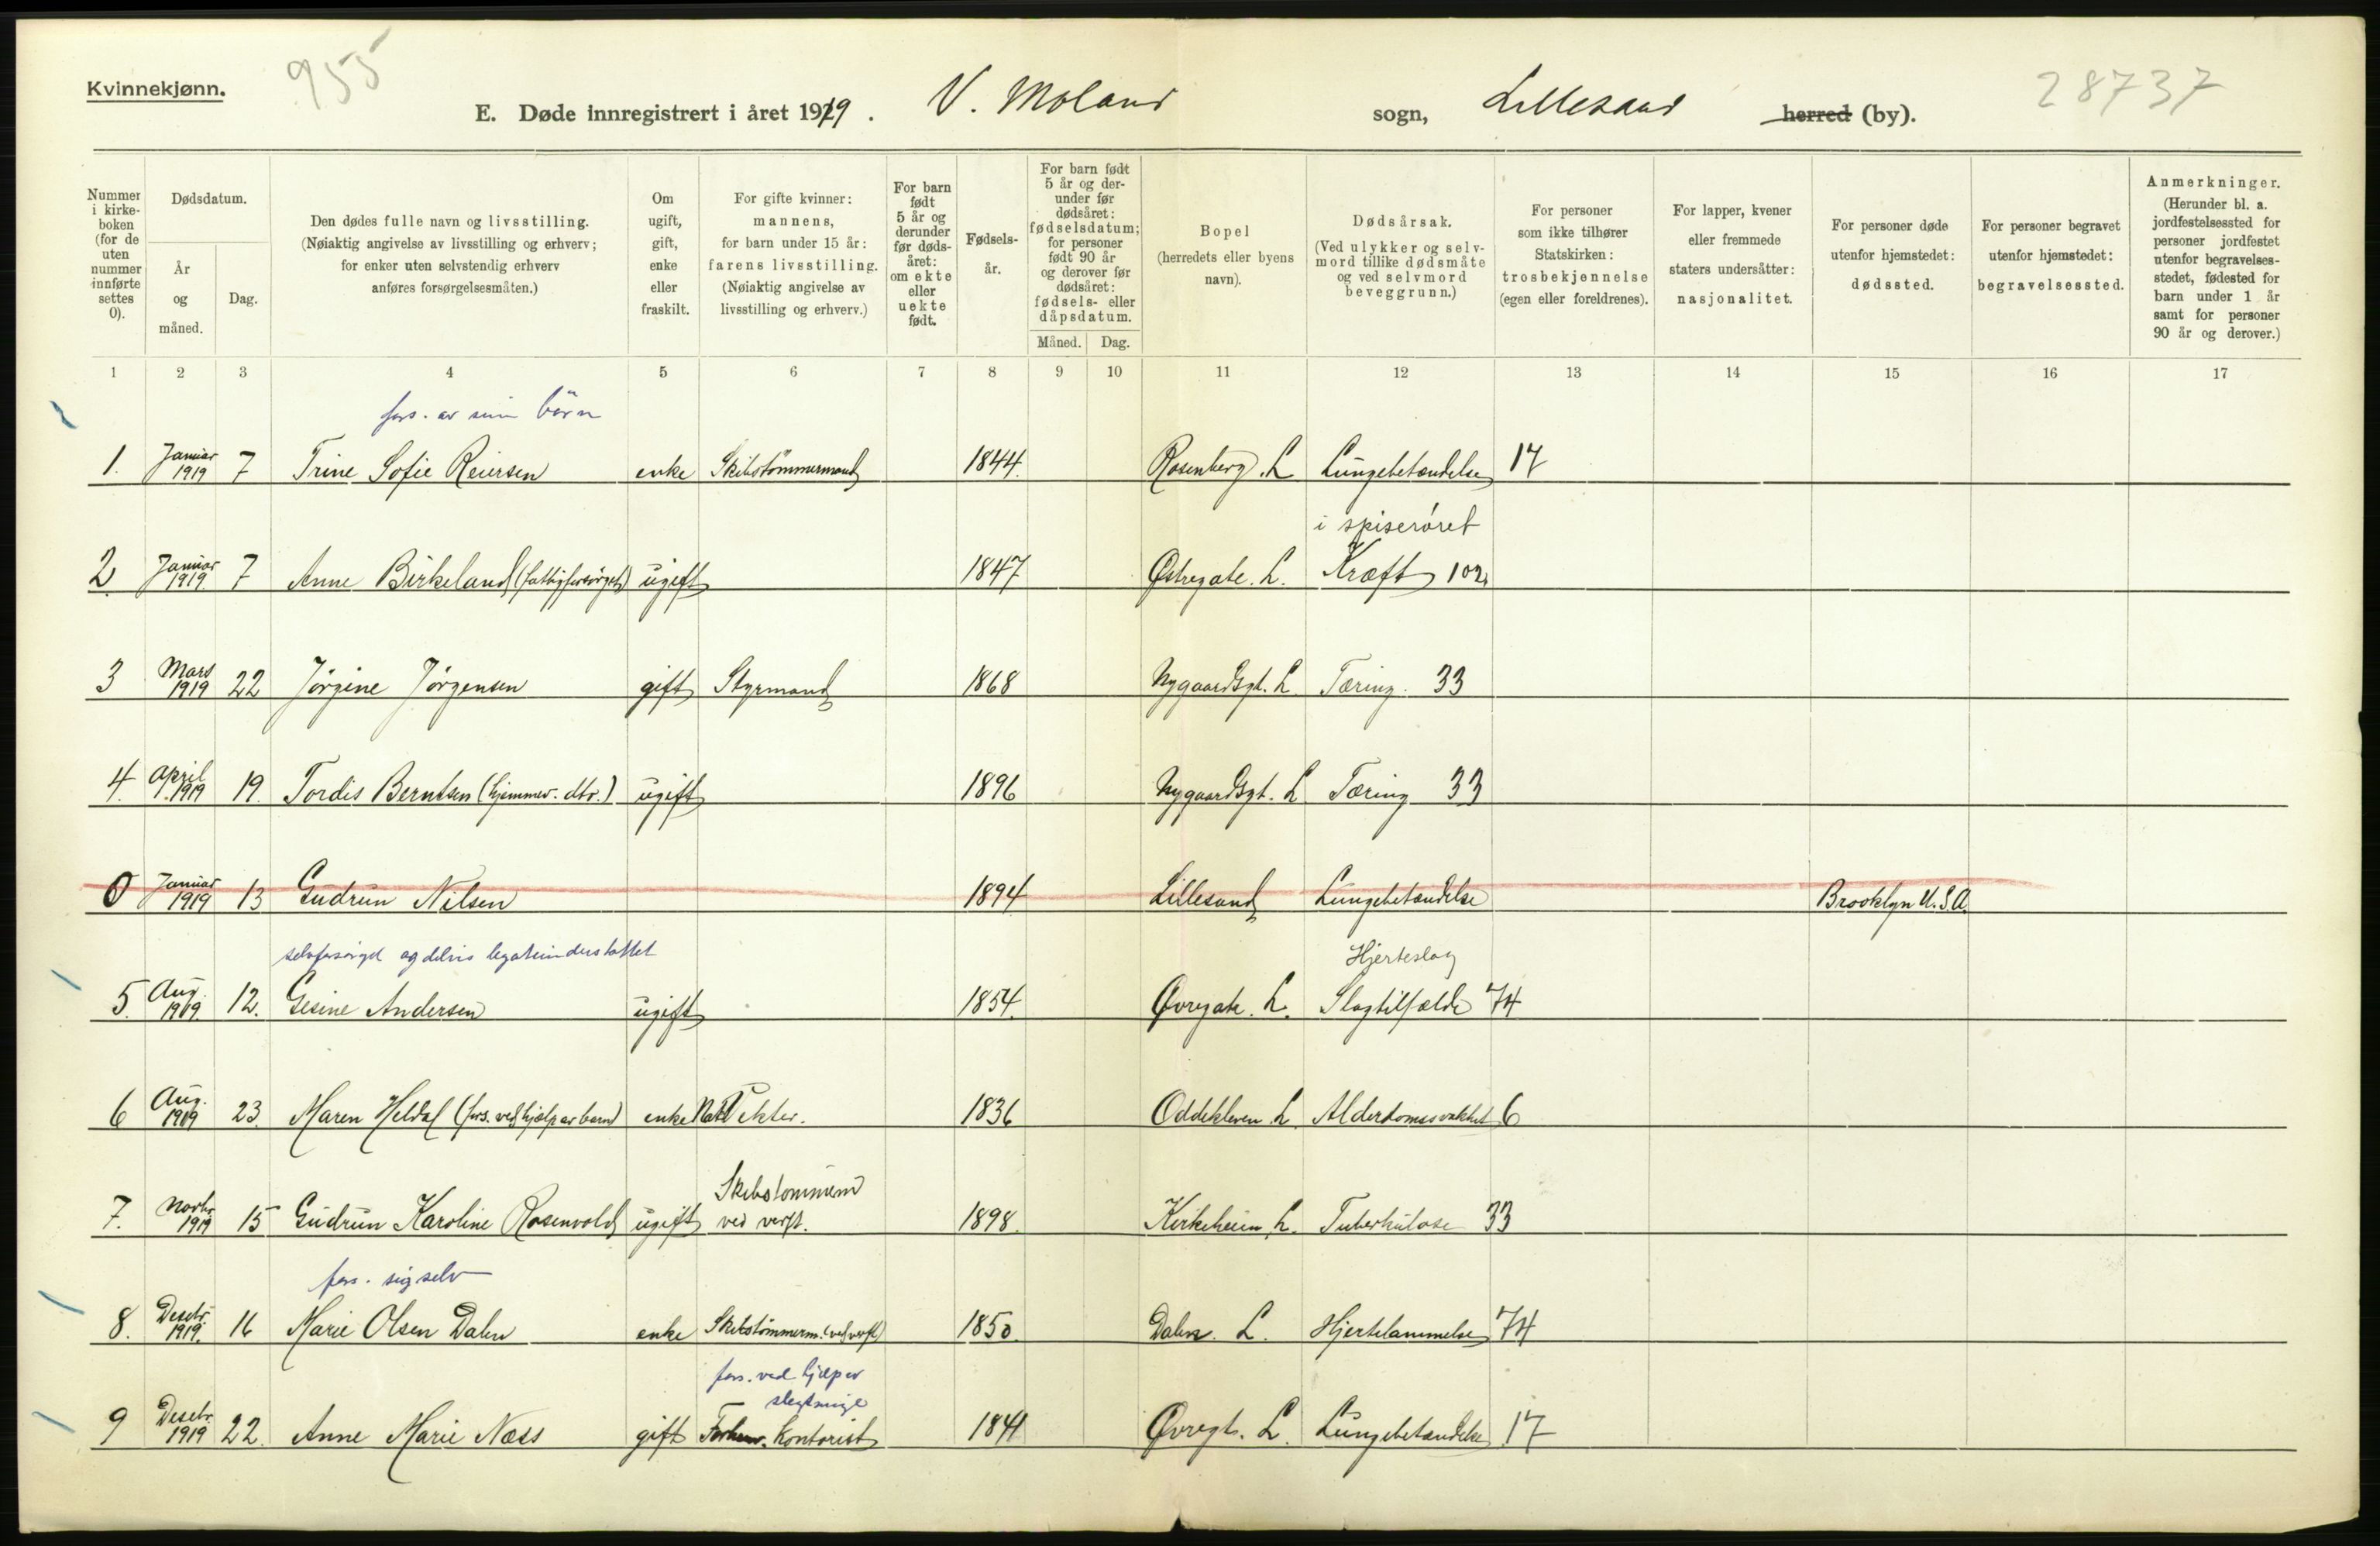 Kvinnekjønn.
955
E. Døde innregistrert i året 1919. V. Moland sogn, Lillesand herred (by).
28737
Nummer i kirkeboken (for de uten nummer innførte settes 0).
Dødsdatum.
År og måned.
Dag.
Den dødes fulle navn og livsstilling. (Nøiaktig angivelse av livsstilling og erhverv; for enker uten selvstendig erhverv anføres forsørgelsesmåten.)
Om ugift, gift, enke eller fraskilt.
For gifte kvinner: mannens, for barn under 15 år: farens livsstilling. (Nøiaktig angivelse av livsstilling og erhverv.)
For barn født 5 år og derunder før dødsåret: om ekte eller uekte født.
Fødselsår.
For barn født 5 år og derunder før dødsåret: fødselsdatum; for personer født 90 år og derover før dødsåret: fødsels- eller dåpsdatum.
Måned. Dag.
Bopel (herredets eller byens navn).
Dødsårsak. (Ved ulykker og selvmord tillike dødsmåte og ved selvmord beveggrunn.)
For personer som ikke tilhører Statskirken: trosbekjennelse (egen eller foreldrenes).
For lapper, kvener eller fremmede staters undersåtter: nasjonalitet.
For personer døde utenfor hjemstedet: dødssted.
For personer begravet utenfor hjemstedet: begravelsessted.
Anmerkninger. (Herunder bl. a. jordfestelsessted for personer jordfestet utenfor begravelsesstedet, fødested for barn under 1 år samt for personer 90 år og derover.)
1 2 3 4 5 6 7 8 9 10 11 12 13 14 15 16 17
fors. av sine börn
1. Januar 1919 7 Trine Sofie Reiersen enke Skibstömmermand 1844. Rosenberg. L Lungebetændelse 17
i spiseröret
2 Januar 1919. 7 Anne Birkeland (fattigforsörget) ugift 1847 Østregate. L. Kræft 102
3 Mars 1919 22 Jörgine Jörgensen gift Styrmand 1868 Nygaardsgt. L Tæring. 33
4. April 1919 19. Tordis Berntsen (hjemmev. dtr.) ugift 1896 Nygaardsgt. L Tæring 33
0 Januar 1919 13 Gudrun Nilsen 1894 Lillesand Lungebetændelse Brooklyn U.S.A.
selvforsörget og delvis legatunderstöttet
Hjerteslag
5. Aug. 1919. 12. Gesine Andersen ugift 1854. Øvregate. L. Slagtilfælde 74
6 Aug. 1919 23. Maren Heldal (fors. ved hjælp av barn) enke Natvekter. 1836 Oddekleven L. Alderdomssvakhet 6
Skibstömmerm
7. Novbr. 1919 15 Gudrun Karoline Rosenvold ugift ved verft. 1898. Kirkeheien L. Tuberkulose 33
fors. sig selv
8. Desebr. 1919. 16 Marie Olsen Dalen enke Skibstömmerm. (ved verft) 1850. Dalen. L. Hjertelammelse 74
fors. ved hjelp av
slegtninge
9 Desebr. 1919 22. Anne Marie Næss gift Forhenv. Kontorist 1841 Øvregt. L. Lungebetændelse 17